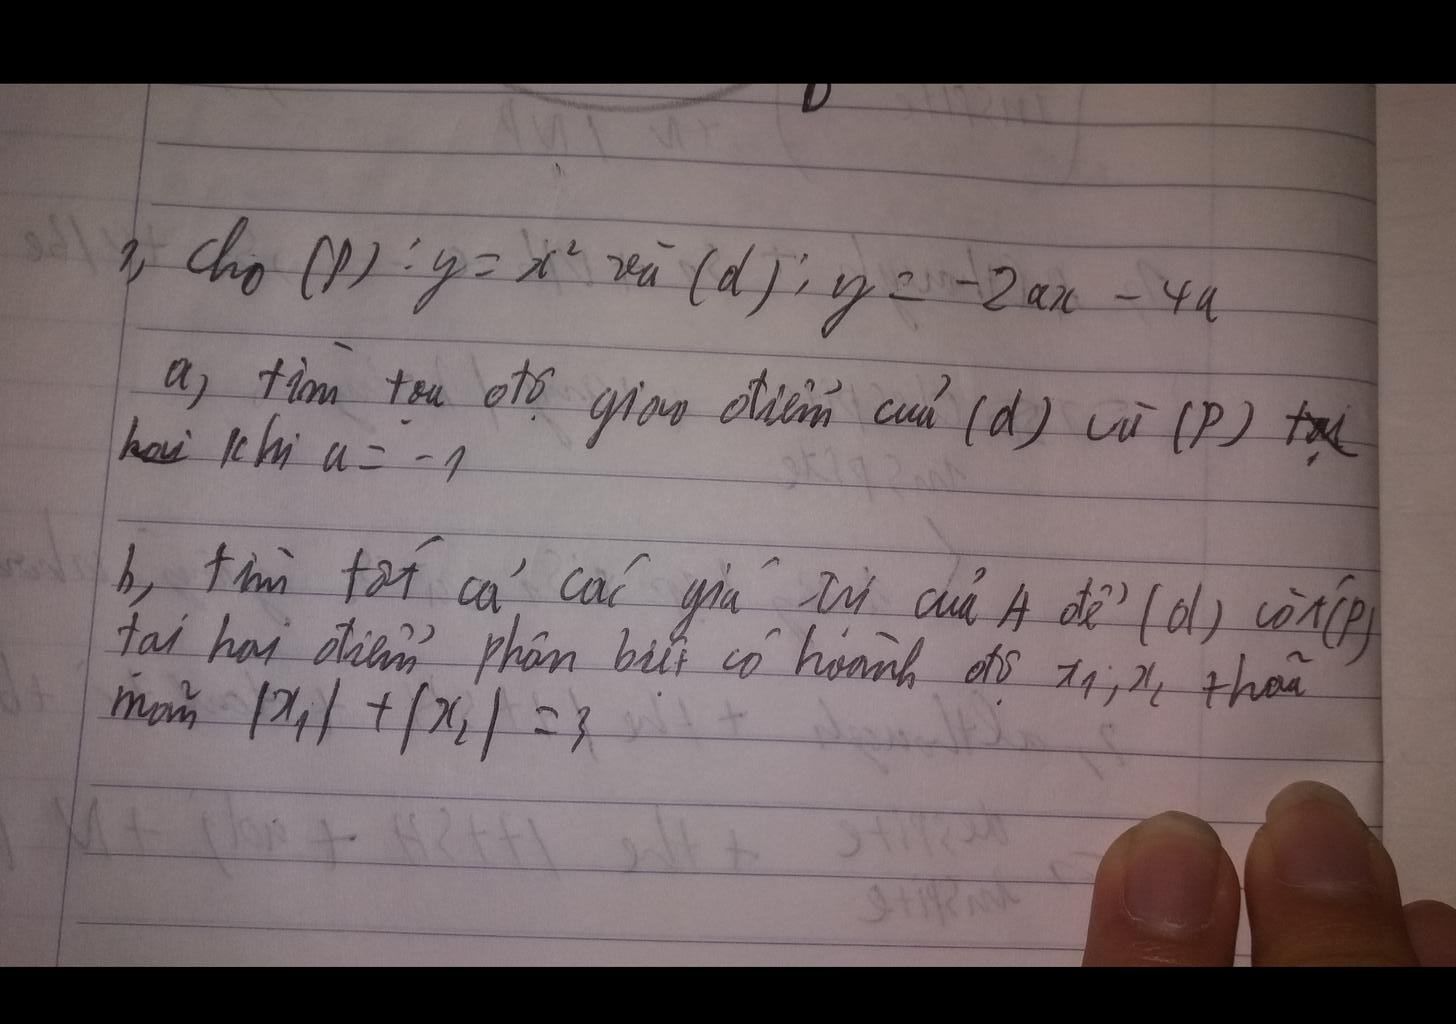 1, Cho (P) : y = x² và (d) : y = -2ax - 4a
a, tìm toạ độ giao điểm của (d) và (P)
khi a = -1
b, tìm tất cả các giá trị của A để (d) cắt (P)
tại hai điểm phân biệt có hoành độ x₁; x₂ thoã
mãn |x₁| + |x₂| = 3